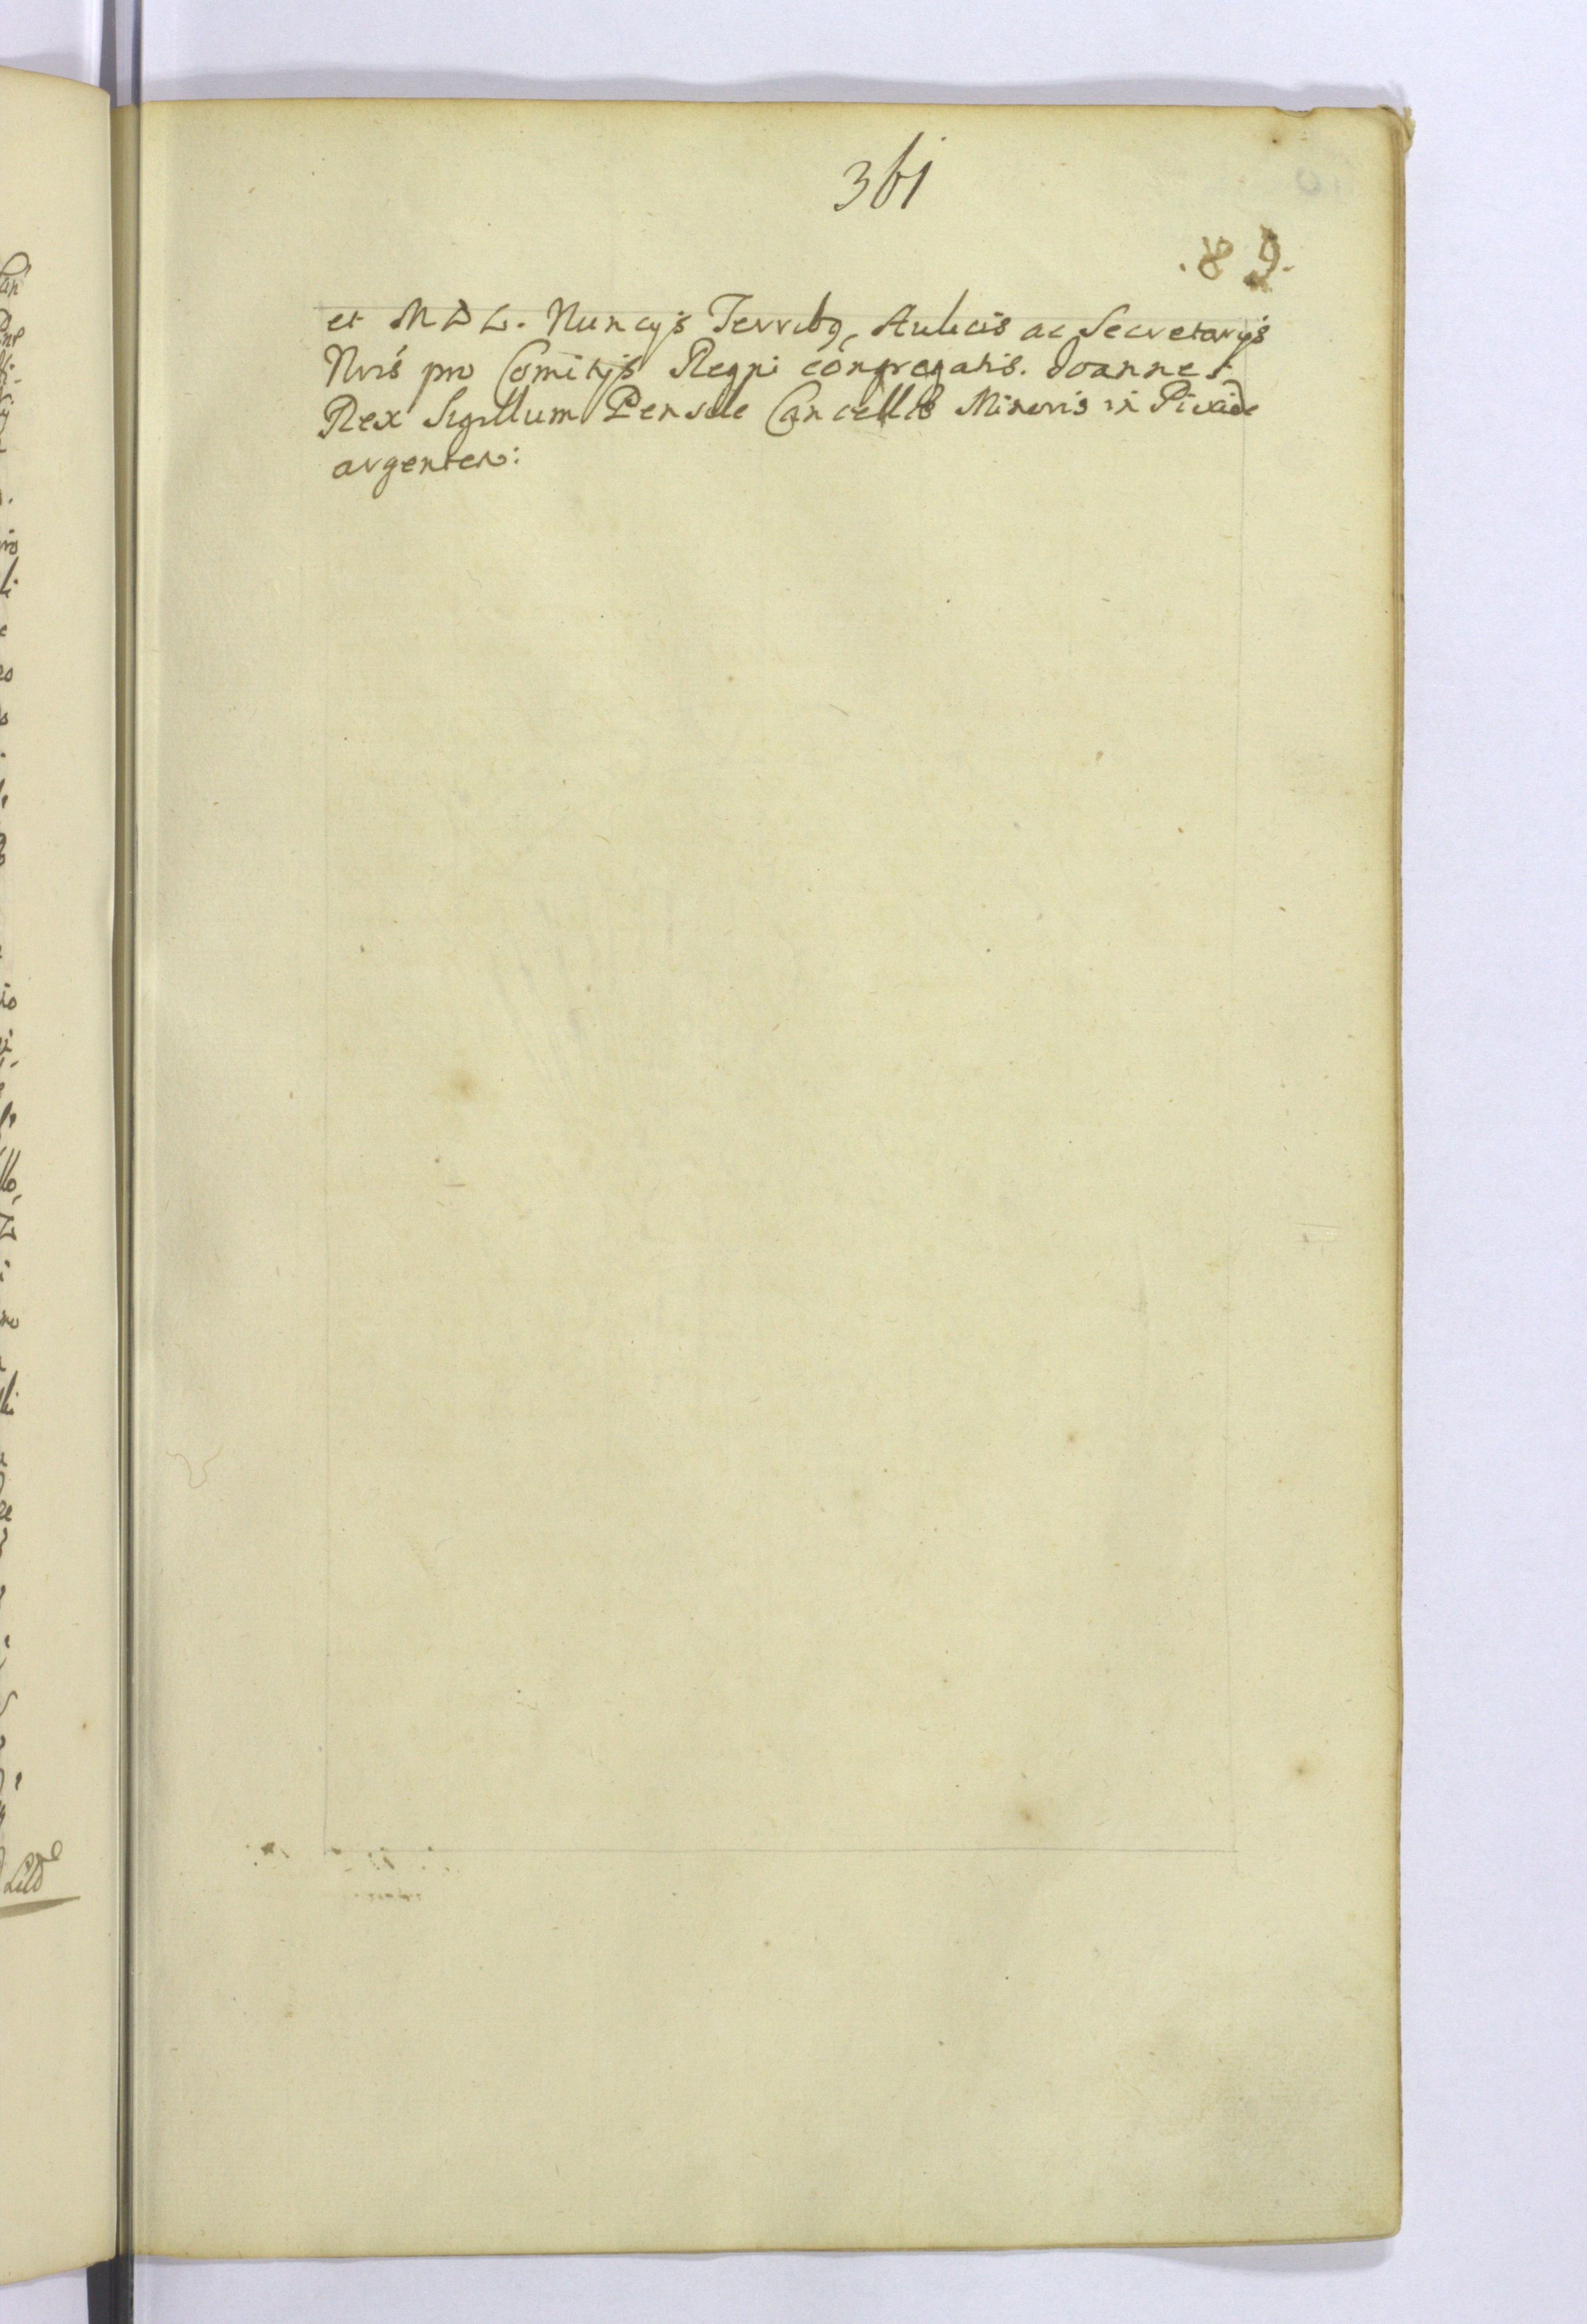 361
.89.
et M D L. Nuncijs Terrib9, Aulicis ac Secretarijs
Nris pro Comitijs Regni congregatis. Joannes
Rex Sygillum Pensile Cancellis Minoris in Pixide
argentea: